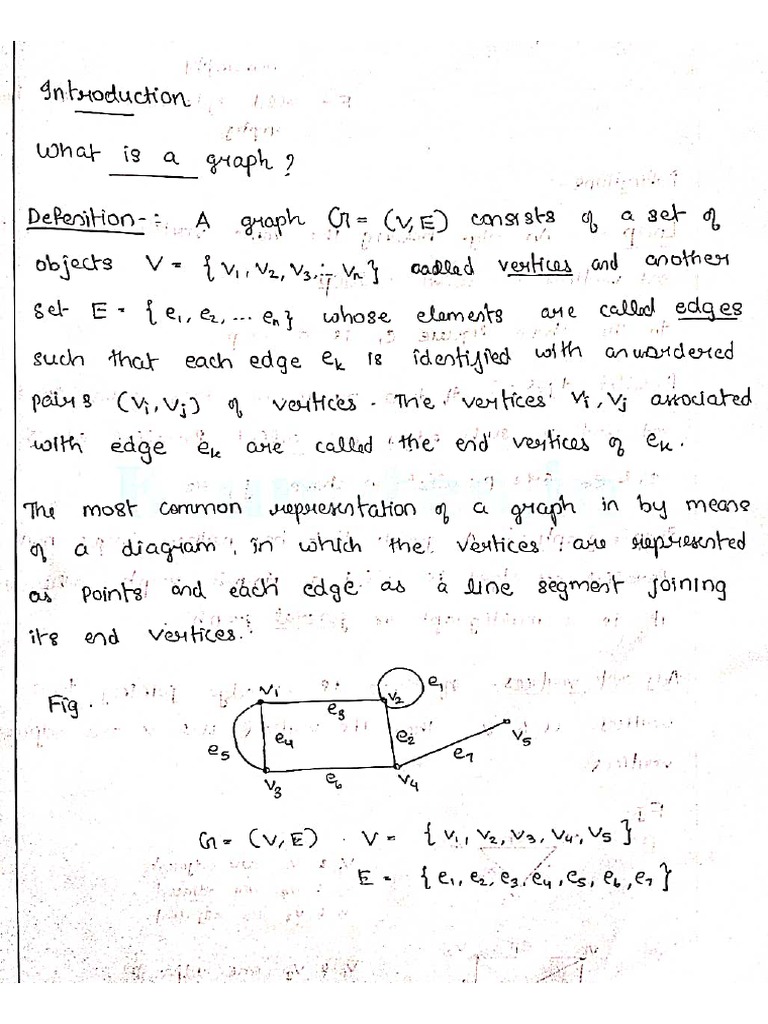 Introduction
What is a graph?
Defenition-: A graph G = (V, E) consists of a set of
objects V = {v1, v2, v3, ... vn} called vertices and another
set E = {e1, e2, ... en} whose elements are called edges
such that each edge ek is identified with an unordered
pairs (vi, vj) of vertices. The vertices vi, vj associated
with edge ek are called the end vertices of ek.
The most common representation of a graph in by means
of a diagram, in which the vertices are represented
as points and each edge as a line segment joining
its end vertices.
Fig.
v1 e3 v2 e1
e5 e4 e2 e7 v5
v3 e6 v4
G = (V, E) . V = {v1, v2, v3, v4, v5}
E = {e1, e2, e3, e4, e5, e6, e7}